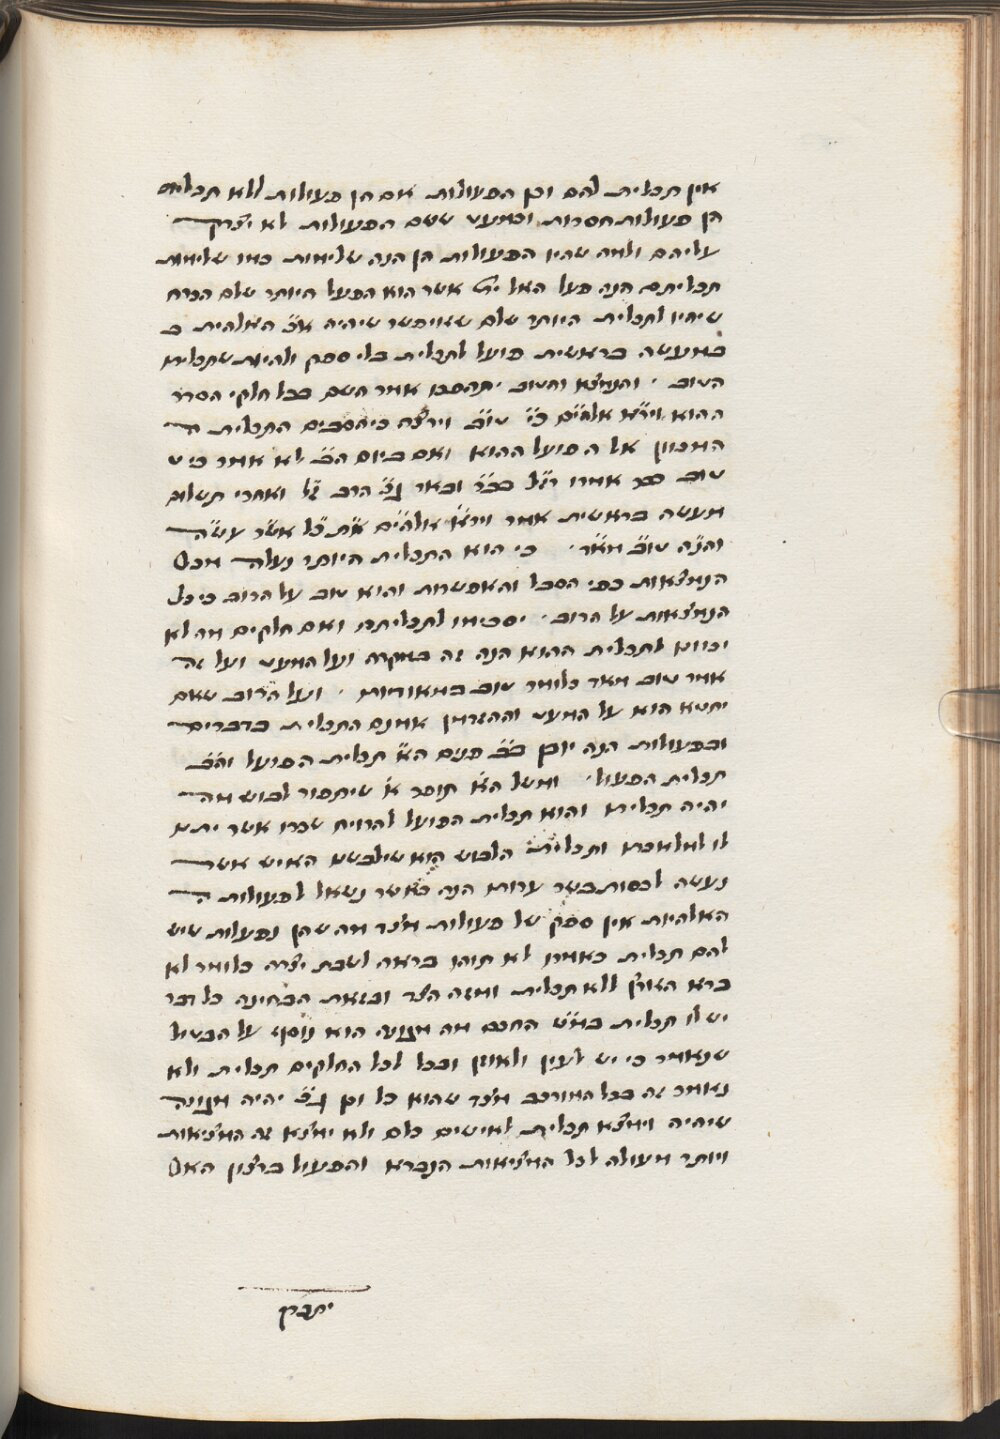 אין תכלית להם וכן הפעולות אם הן פעולות ללא תכלית
הן פעולות חסרות וכמעט ששם הפעולות לא יצדק
עליהם ולמה שהיו הפעולות הן הנה שלימות כמו שלימות
תכליתם הנה פעל האל ית' אשר הוא הפעל היותר שלם הכרח
שיהיו לתכלית היותר שלם שאיפשר שיהיה א״כ האלהית ב
במעשה בראשית פועל לתכלית בלי ספק ולהיות שתכלית
הטוב והנמצא והטוב יתהפכו אמר השם בכל חלקי הסדר
ההוא וירא אלהים כי טוב וירצה כי הסכים התכלית ה
המכוון אל הפועל ההוא ואם ביום הב׳ לא אמר כי ט
טוב כבר אמרו רז״ל בב״ר ובאר ג״כ הרב ז״ל ואחרי תשלום
מעשה בראשית אמר וירא אלהים את כל אשר עשה
והנה טוב מאד כי הוא התכלית היותר נעלה מכל
הנמצאות כפי הסבל והאפשרות והוא טוב על הרוב כי כל
הנמצאות על הרוב יסכימו לתכליתה ואם חלקים מה לא
יכוונו לתכלית ההוא הנה זה במקרה ועל המעט ועל זה
אמר טוב מאד כלומר טוב במאודיות ועל הרוב שאם
יחטא הוא על המעט וההזדמן אמנם התכלית בדברים
ובפעולות הנה יובן בב׳ פנים הא׳ תכלית הפועל והב׳
תכלית הפעול ומשל הא׳ תופר א׳ שיתפור לבוש מה
יהיה תכליתו והוא תכלית הפועל להרויח שכרו אשר יתנו
לו למלאכתו ותכלית הלבוש הוא שילבשנו האיש אשר
נעשה לכסות בשר ערותו הנה כאשר נשאל לפעולות ה
האלהיות אין ספק של פעולות מצד מה שהן נפעלות שיש
להם תכלית כאמרו לא תוהו בראה לשבת יצרה כלומר לא
ברא הארץ ללא תכלית ומזה הצד ובזאת הבחינה כל דבר
יש לו תכלית במ״ש החכם מה מגונה הוא נוסף על הבטול
שנאמר כי יש לעין ולאזן ובכל לכל החלקים תכלית ולא
נאמר זה בכל המורכב מצד שהוא כל וכן ג״כ יהיה מגונה
שיהיה וימצא תכלית לאישים כלם ולא ימצא זה המציאות
ויותר מעולה לכל המציאות הנברא והפעול ברצון האל
יתברך